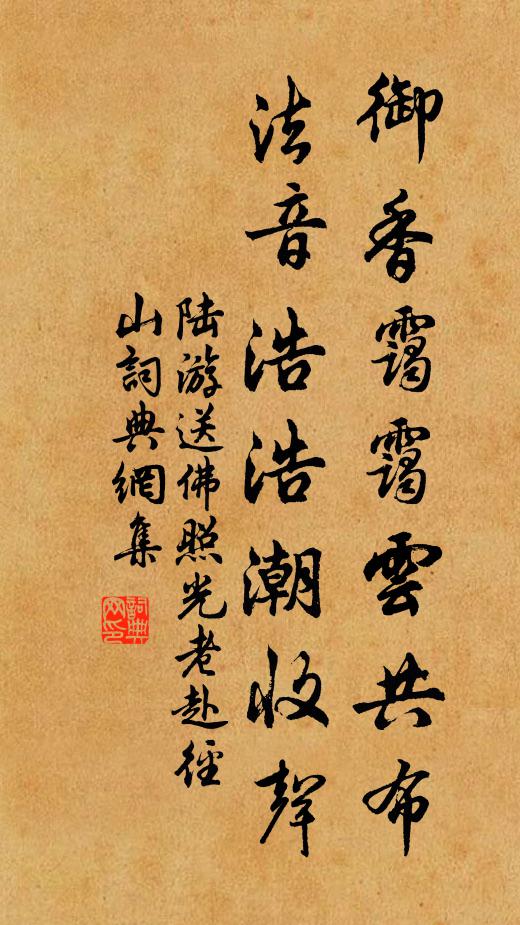 御香靄靄雲共布
法音浩浩潮收聲
陸游送佛照光老赴徑
山詞典網集
詞典
网印